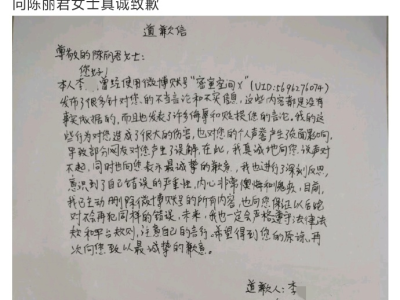 向陈丽君女士真诚致歉
道歉信
尊敬的陈丽君女士：
您好！
本人李 ，曾经使用微博账号“密室空间X”（UID:5696276074）
发布了很多针对您的不当言论和不实信息，这些内容都是没有
事实依据的，而且也发表了许多侮辱和贬损您的言论。我的这
些行为对您造成了很大的伤害，也对您的个人声誉产生负面影响，
导致部分网友对您产生了误解。在此，我真诚地向您说声对
不起，同时也向您表示最诚挚的歉意，我也进行了深刻反思，
意识到了自己错误的严重性，内心非常懊悔和愧疚，目前，
我已主动删除微博账号的所有内容，也向您保证以后绝
对不会再犯同样的错误，未来，我也一定会严格遵守法律法
规和平台规则，注意自己的言行。希望得到您的原谅，再
次向您致以最诚挚的歉意。
道歉人：李